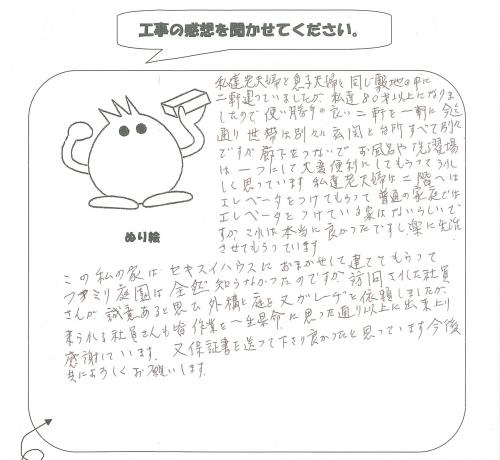 工事の感想を聞かせてください。
私達老夫婦と息子夫婦と同じ敷地の中に
二軒建っていましたが、私達80才以上になりま
したので使い勝手の良い二軒を一軒に今迄
通り世帯は別々に玄関と台所すべて別々
ですが廊下をつないでお風呂や洗濯場
は一つにして大変便利にしてもらってうれ
しく思っています 私達老夫婦は二階へは
エレベータをつけてもらって普通の家庭では
エレベータをつけている家はないらしいで
すが これは本当に良かったですし楽に生活
させてもらっています
ぬり絵
この私の家はセキスイハウスにおまかせして建ててもらって
ファミリ庭園は全然知らなかったのですが 訪問された社員
さんが誠意あると思い外構と庭を又ガレーヂと依頼しましたが、
来られる社員さんも皆作業を一生県命に思った通り以上に出来上り
感謝しています。又保証書を送って下さり良かったと思っています今後
共によろしくお願いします。